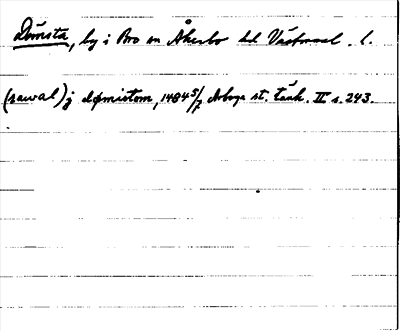 Dömsta, by i Bro sn Åkerbo hd Västmanl. l.
(sawal) j dømistom, 1484 5/7 Arboga st. tänk. II s. 243.